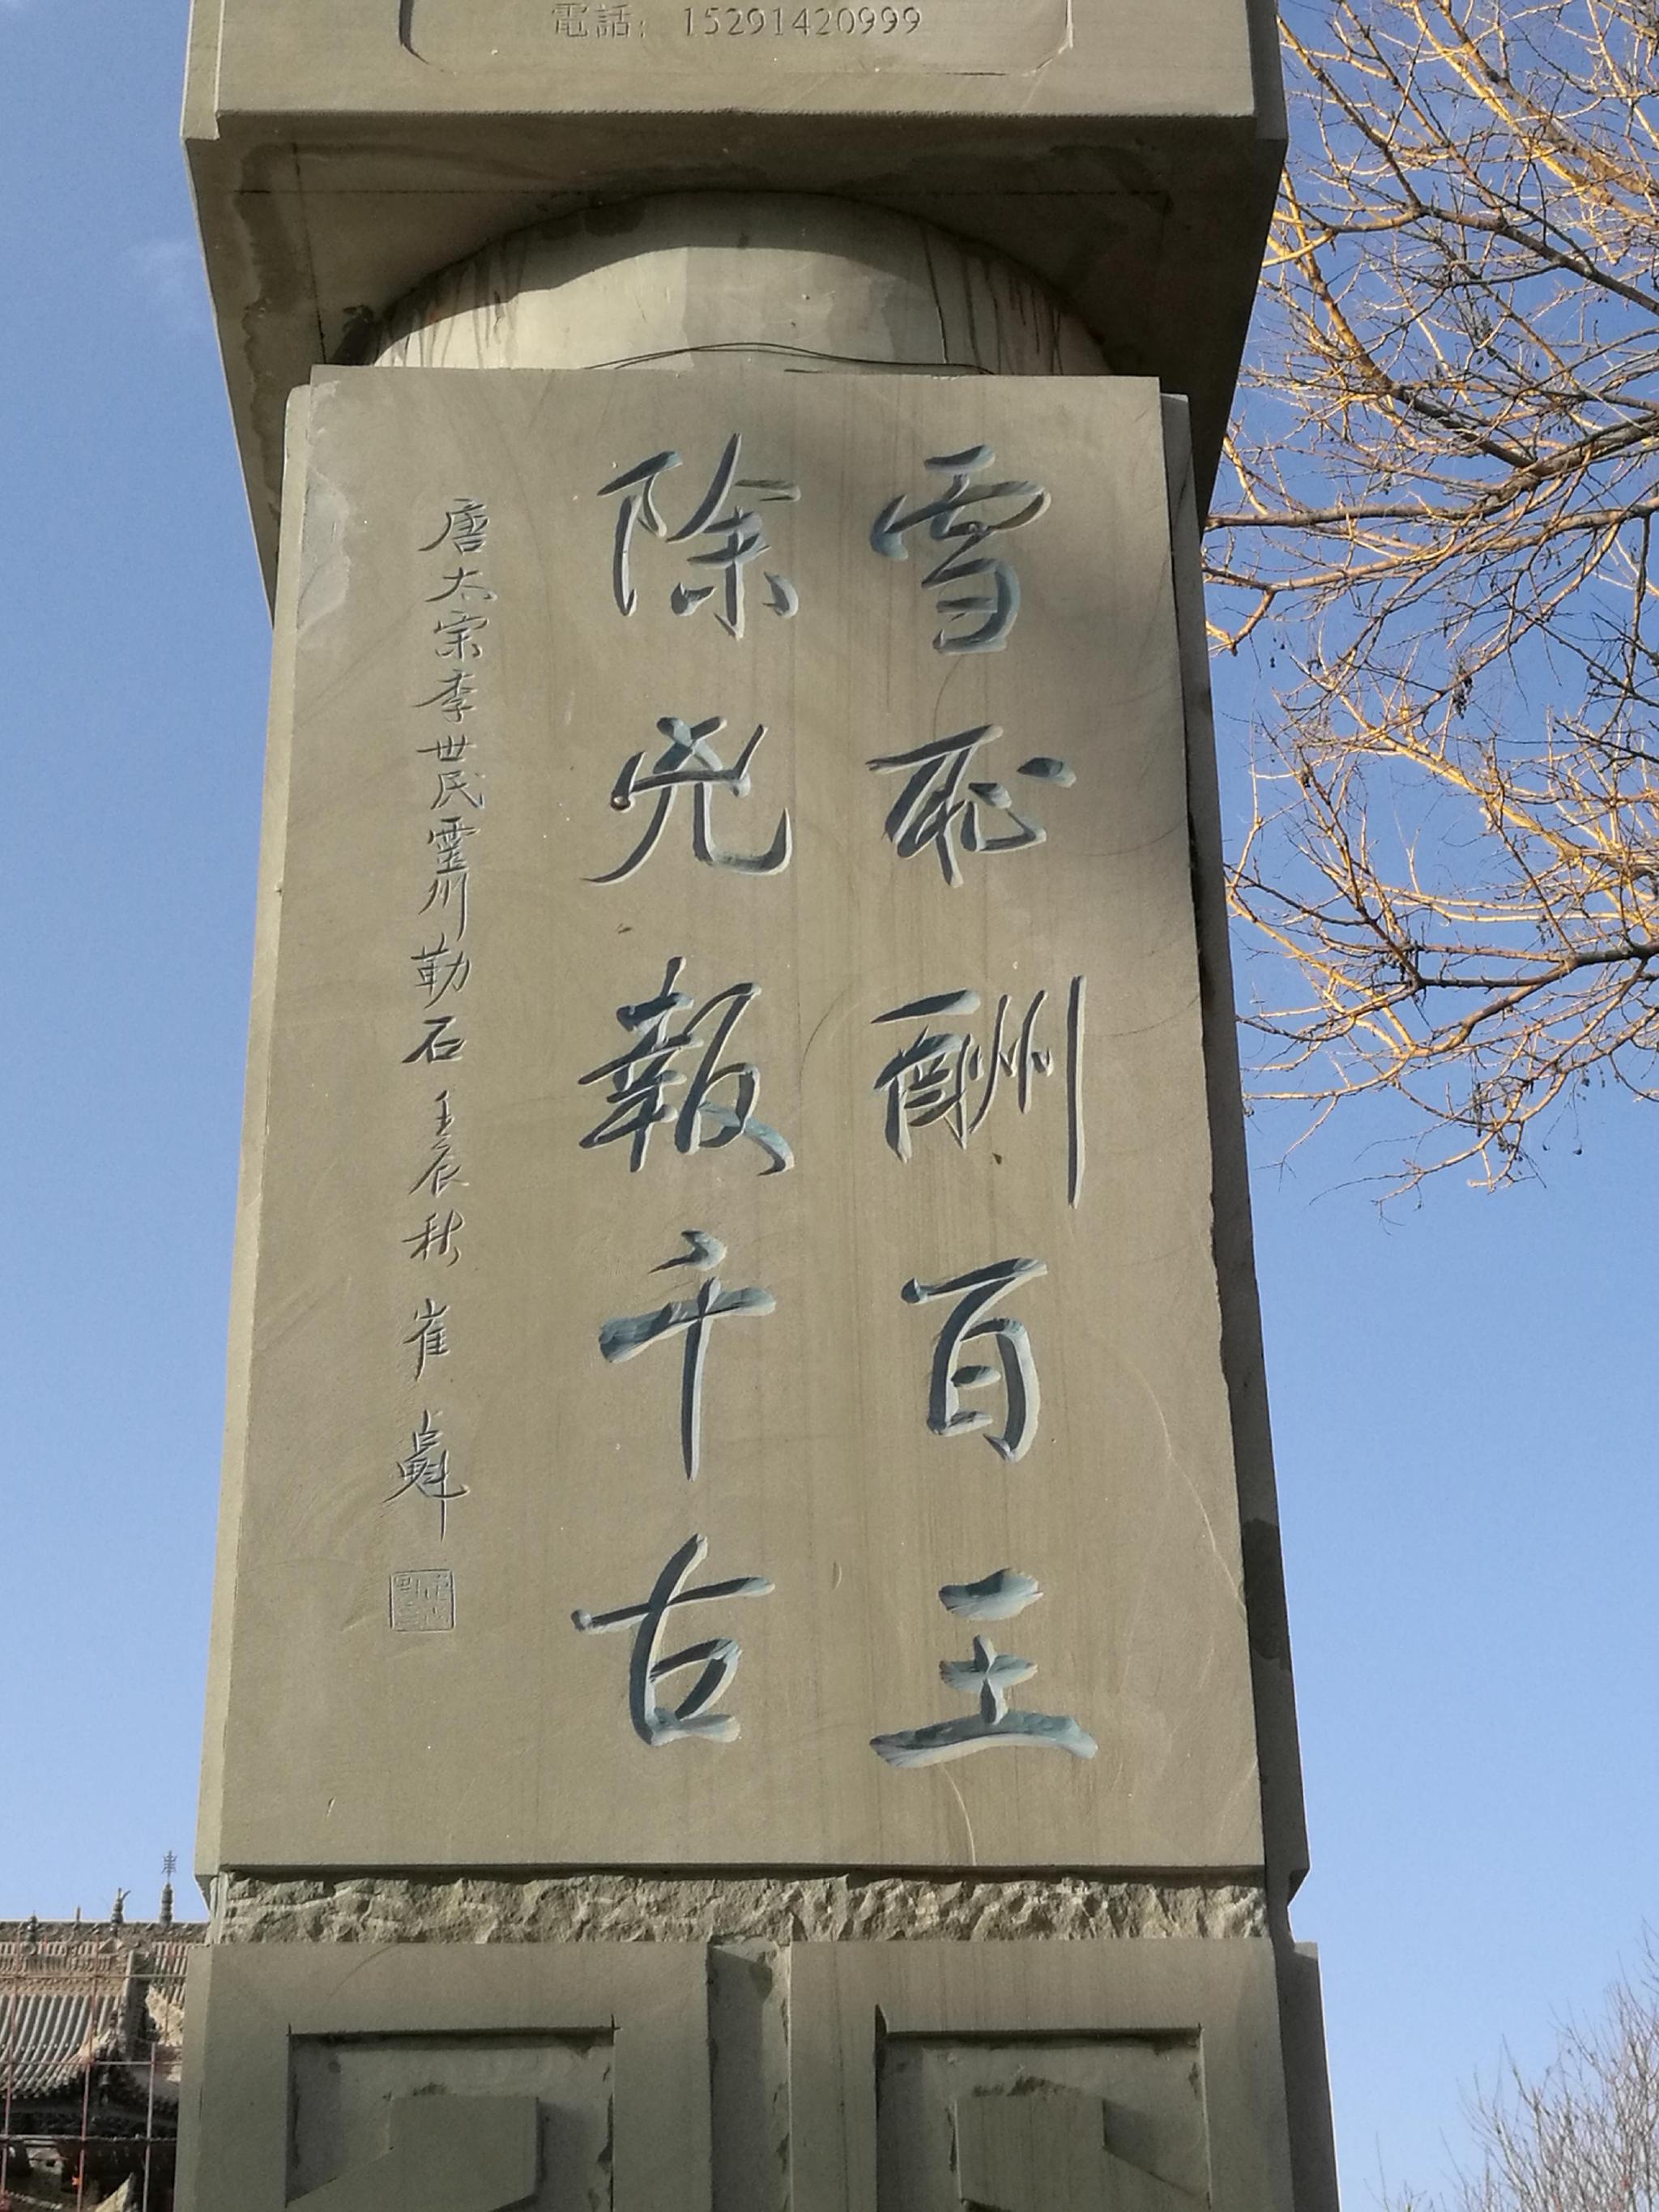 電話：15291420999
雪恥酬百王
除兇報千古
唐太宗李世民靈州勒石 壬辰秋 崔